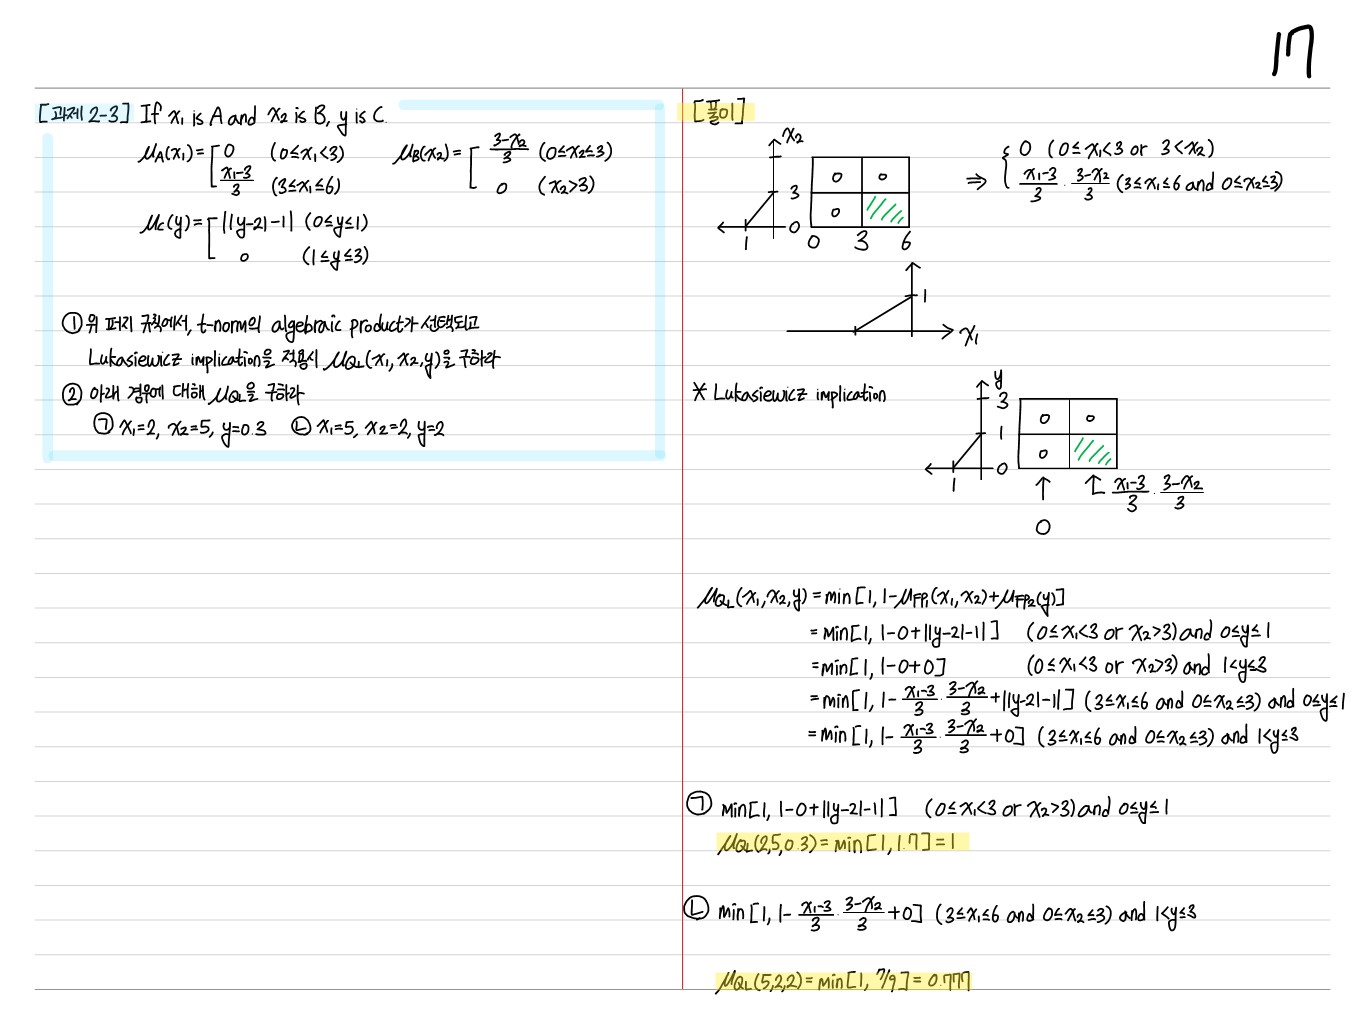 17
[과제 2-3] If x₁ is A and x₂ is B, y is C.
μA(x₁)=[0 (0≤x₁<3)
x₁-3/3 (3≤x₁≤6)
μB(x₂)=[3-x₂/3 (0≤x₂≤3)
0 (x₂>3)
μc(y)=[||y-2|-1| (0≤y≤1)
0 (1≤y≤3)
① 위 퍼지 규칙에서, t-norm의 algebraic product가 선택되고
Lukasiewicz implication을 적용시 μQL(x₁, x₂, y)를 구하라
② 아래 경우에 대해 μQL을 구하라
㉠ x₁=2, x₂=5, y=0.3 ㉡ x₁=5, x₂=2, y=2
[풀이]
x₂
3
0
1
0 0
0
0 3 6
⇒ { 0 (0≤x₁<3 or 3<x₂)
x₁-3/3 · 3-x₂/3 (3≤x₁≤6 and 0≤x₂≤3)
1
x₁
* Lukasiewicz implication
y
3
1
0
1
0 0
0
↑ 0
↑ x₁-3/3 · 3-x₂/3
μQL(x₁,x₂,y) = min[1, 1-μFP₁(x₁,x₂)+μFP₂(y)]
= min[1, 1-0+||y-2|-1|] (0≤x₁<3 or x₂>3) and 0≤y≤1
= min[1, 1-0+0] (0≤x₁<3 or x₂>3) and 1<y≤3
= min[1, 1- x₁-3/3 · 3-x₂/3 +||y-2|-1|] (3≤x₁≤6 and 0≤x₂≤3) and 0≤y≤1
= min[1, 1- x₁-3/3 · 3-x₂/3 +0] (3≤x₁≤6 and 0≤x₂≤3) and 1<y≤3
㉠ min[1, 1-0+||y-2|-1|] (0≤x₁<3 or x₂>3) and 0≤y≤1
μQL(2,5,0.3) = min[1, 1.7] = 1
㉡ min[1, 1- x₁-3/3 · 3-x₂/3 +0] (3≤x₁≤6 and 0≤x₂≤3) and 1<y≤3
μQL(5,2,2) = min[1, 7/9] = 0.777